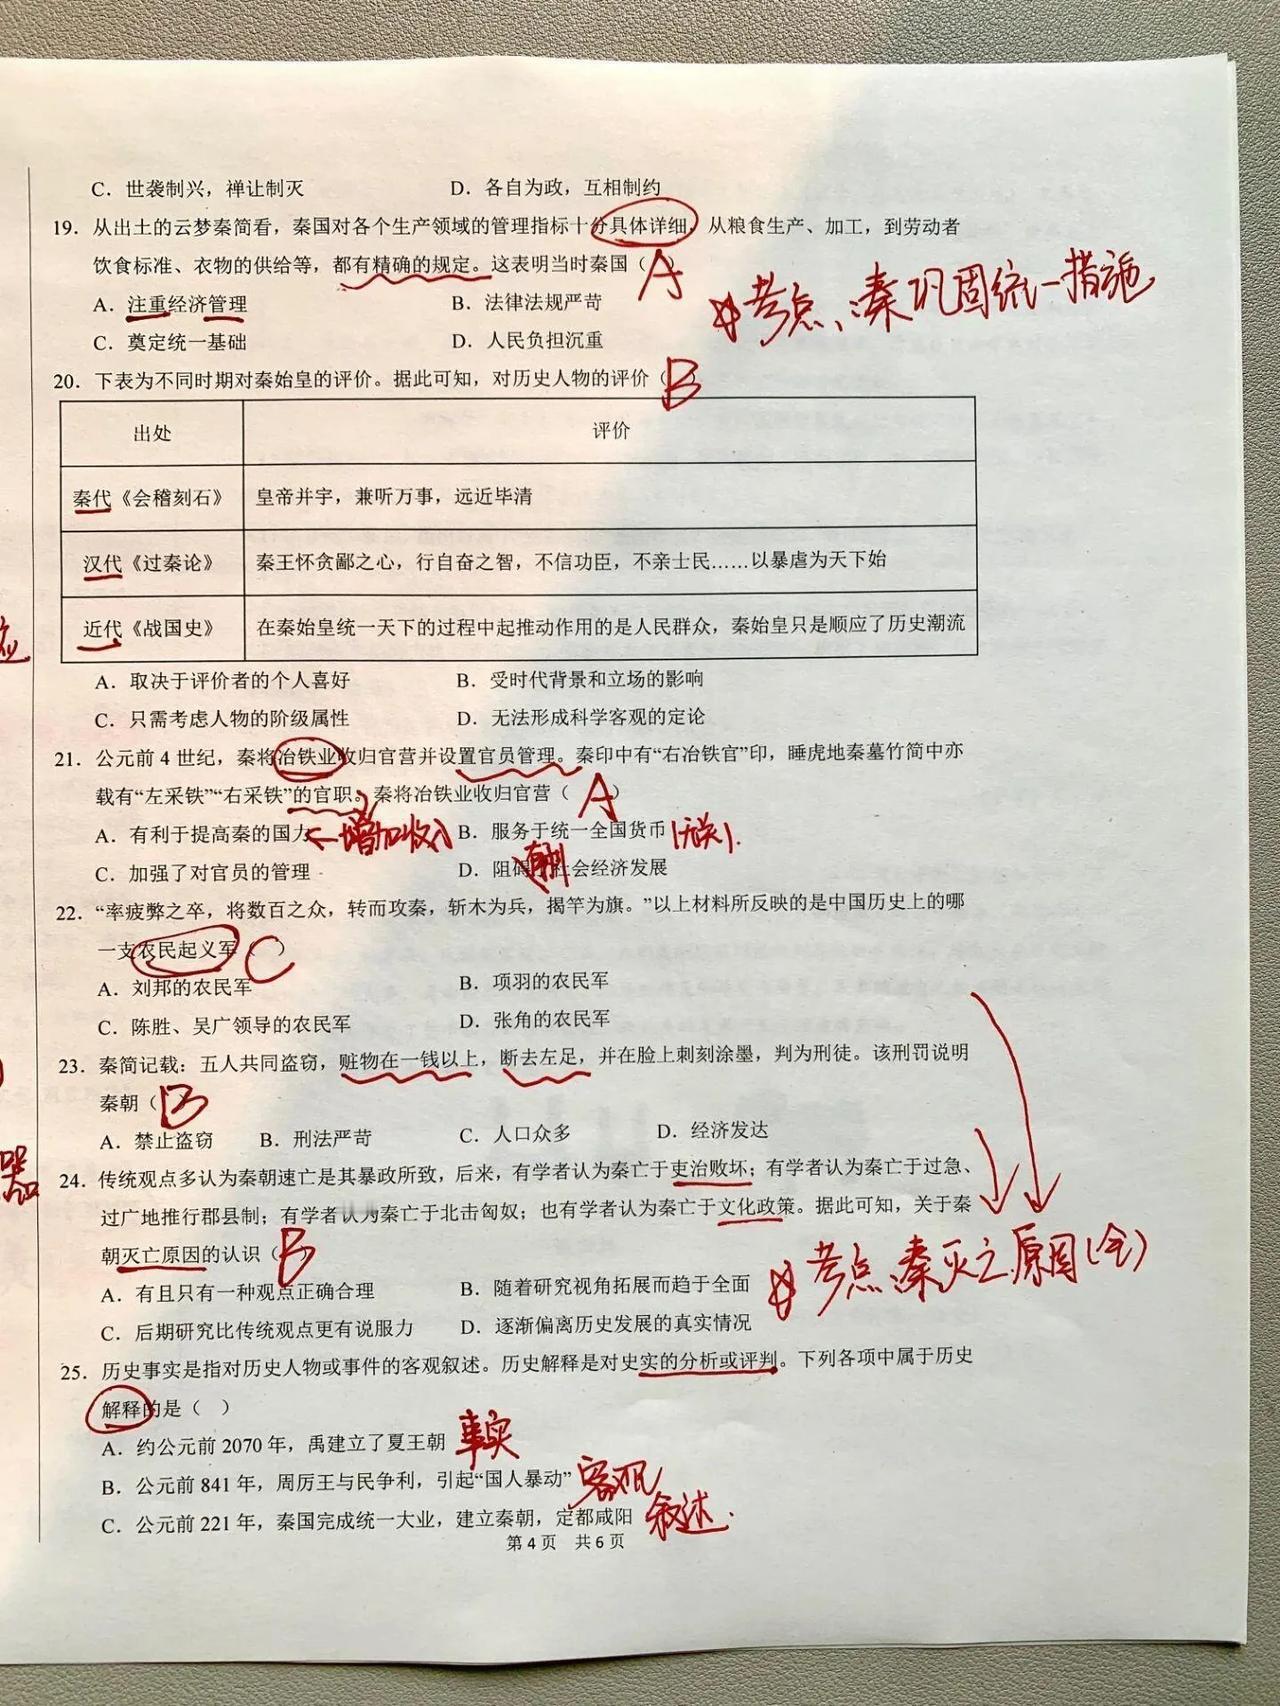 C．世袭制兴，禅让制灭 D．各自为政，互相制约
19．从出土的云梦秦简看，秦国对各个生产领域的管理指标十分具体详细，从粮食生产、加工，到劳动者
饮食标准、衣物的供给等，都有精确的规定。这表明当时秦国（A）
A．注重经济管理 B．法律法规严苛
☆考点、:秦巩固统一措施
C．奠定统一基础 D．人民负担沉重
20．下表为不同时期对秦始皇的评价。据此可知，对历史人物的评价（B
出处 评价
秦代《会稽刻石》 皇帝并宇，兼听万事，远近毕清
汉代《过秦论》 秦王怀贪鄙之心，行自奋之智，不信功臣，不亲士民……以暴虐为天下始
近代《战国史》 在秦始皇统一天下的过程中起推动作用的是人民群众，秦始皇只是顺应了历史潮流
A．取决于评价者的个人喜好 B．受时代背景和立场的影响
C．只需考虑人物的阶级属性 D．无法形成科学客观的定论
21．公元前 4 世纪，秦将冶铁业收归官营并设置官员管理。秦印中有“右冶铁官”印，睡虎地秦墓竹简中亦
载有“左采铁”“右采铁”的官职。秦将冶铁业收归官营（A）
A．有利于提高秦的国力 ←增加收入 B．服务于统一全国货币 无关
C．加强了对官员的管理 D．阻碍了社会经济发展
22．“率疲弊之卒，将数百之众，转而攻秦，斩木为兵，揭竿为旗。”以上材料所反映的是中国历史上的哪
一支农民起义军（C）
A．刘邦的农民军 B．项羽的农民军
C．陈胜、吴广领导的农民军 D．张角的农民军
23．秦简记载：五人共同盗窃，赃物在一钱以上，断去左足，并在脸上刺刻涂墨，判为刑徒。该刑罚说明
秦朝（B
A．禁止盗窃 B．刑法严苛 C．人口众多 D．经济发达
24．传统观点多认为秦朝速亡是其暴政所致，后来，有学者认为秦亡于吏治败坏；有学者认为秦亡于过急、
过广地推行郡县制；有学者认为秦亡于北击匈奴；也有学者认为秦亡于文化政策。据此可知，关于秦
朝灭亡原因的认识（B
☆考点、秦灭亡原因(全)
A．有且只有一种观点正确合理 B．随着研究视角拓展而趋于全面
C．后期研究比传统观点更有说服力 D．逐渐偏离历史发展的真实情况
25．历史事实是指对历史人物或事件的客观叙述。历史解释是对史实的分析或评判。下列各项中属于历史
解释的是（ ）
A．约公元前 2070 年，禹建立了夏王朝 事实
B．公元前 841 年，周厉王与民争利，引起“国人暴动” 客观
C．公元前 221 年，秦国完成统一大业，建立秦朝，定都咸阳 叙述.
第 4 页 共 6 页